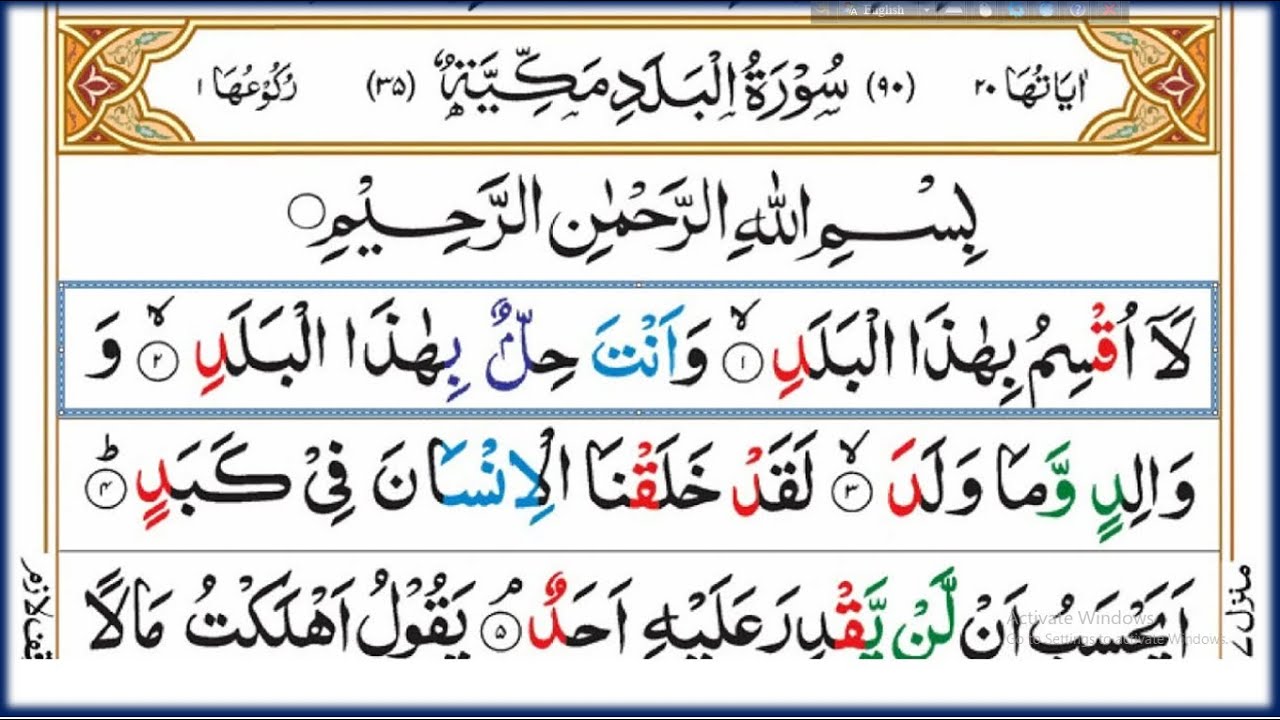 English
اٰيَاتُهَا ٢٠ (٩٠) سُوْرَةُ الْبَلَدِ مَكِّيَّةٌ (٣٥) رُكُوْعُهَا ١
بِسْمِ اللّٰهِ الرَّحْمٰنِ الرَّحِيْمِ
لَآ اُقْسِمُ بِهٰذَا الْبَلَدِ ۙ‏﴿۱﴾ وَاَنْتَ حِلٌّۢ بِهٰذَا الْبَلَدِ ۙ‏﴿۲﴾ وَ
وَالِدٍ وَّمَا وَلَدَ ۙ‏﴿۳﴾ لَقَدْ خَلَقْنَا الْاِنْسَانَ فِىْ كَبَدٍ ؕ‏﴿۴﴾
اَيَحْسَبُ اَنْ لَّنْ يَّقْدِرَ عَلَيْهِ اَحَدٌ ۘ‏﴿۵﴾ يَقُوْلُ اَهْلَكْتُ مَالًا
منزل ٧
Activate Windows
Go to Settings to activate Windows.